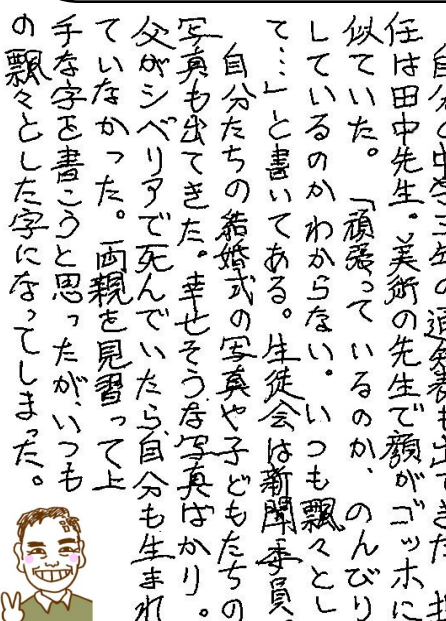 自分の中学三年の通知表も出てきた。担
任は田中先生。美術の先生で顔がゴッホに
似ていた。「頑張っているのか、のんびり
しているのかわからない。いつも飄々とし
て…」と書いてある。生徒会は新聞委員。
自分たちの結婚式の写真や子どもたちの
写真も出てきた。幸せそうな写真ばかり。
父がシベリアで死んでいたら自分も生まれ
ていなかった。両親を見習って上
手な字を書こうと思ったが、いつも
の飄々とした字になってしまった。